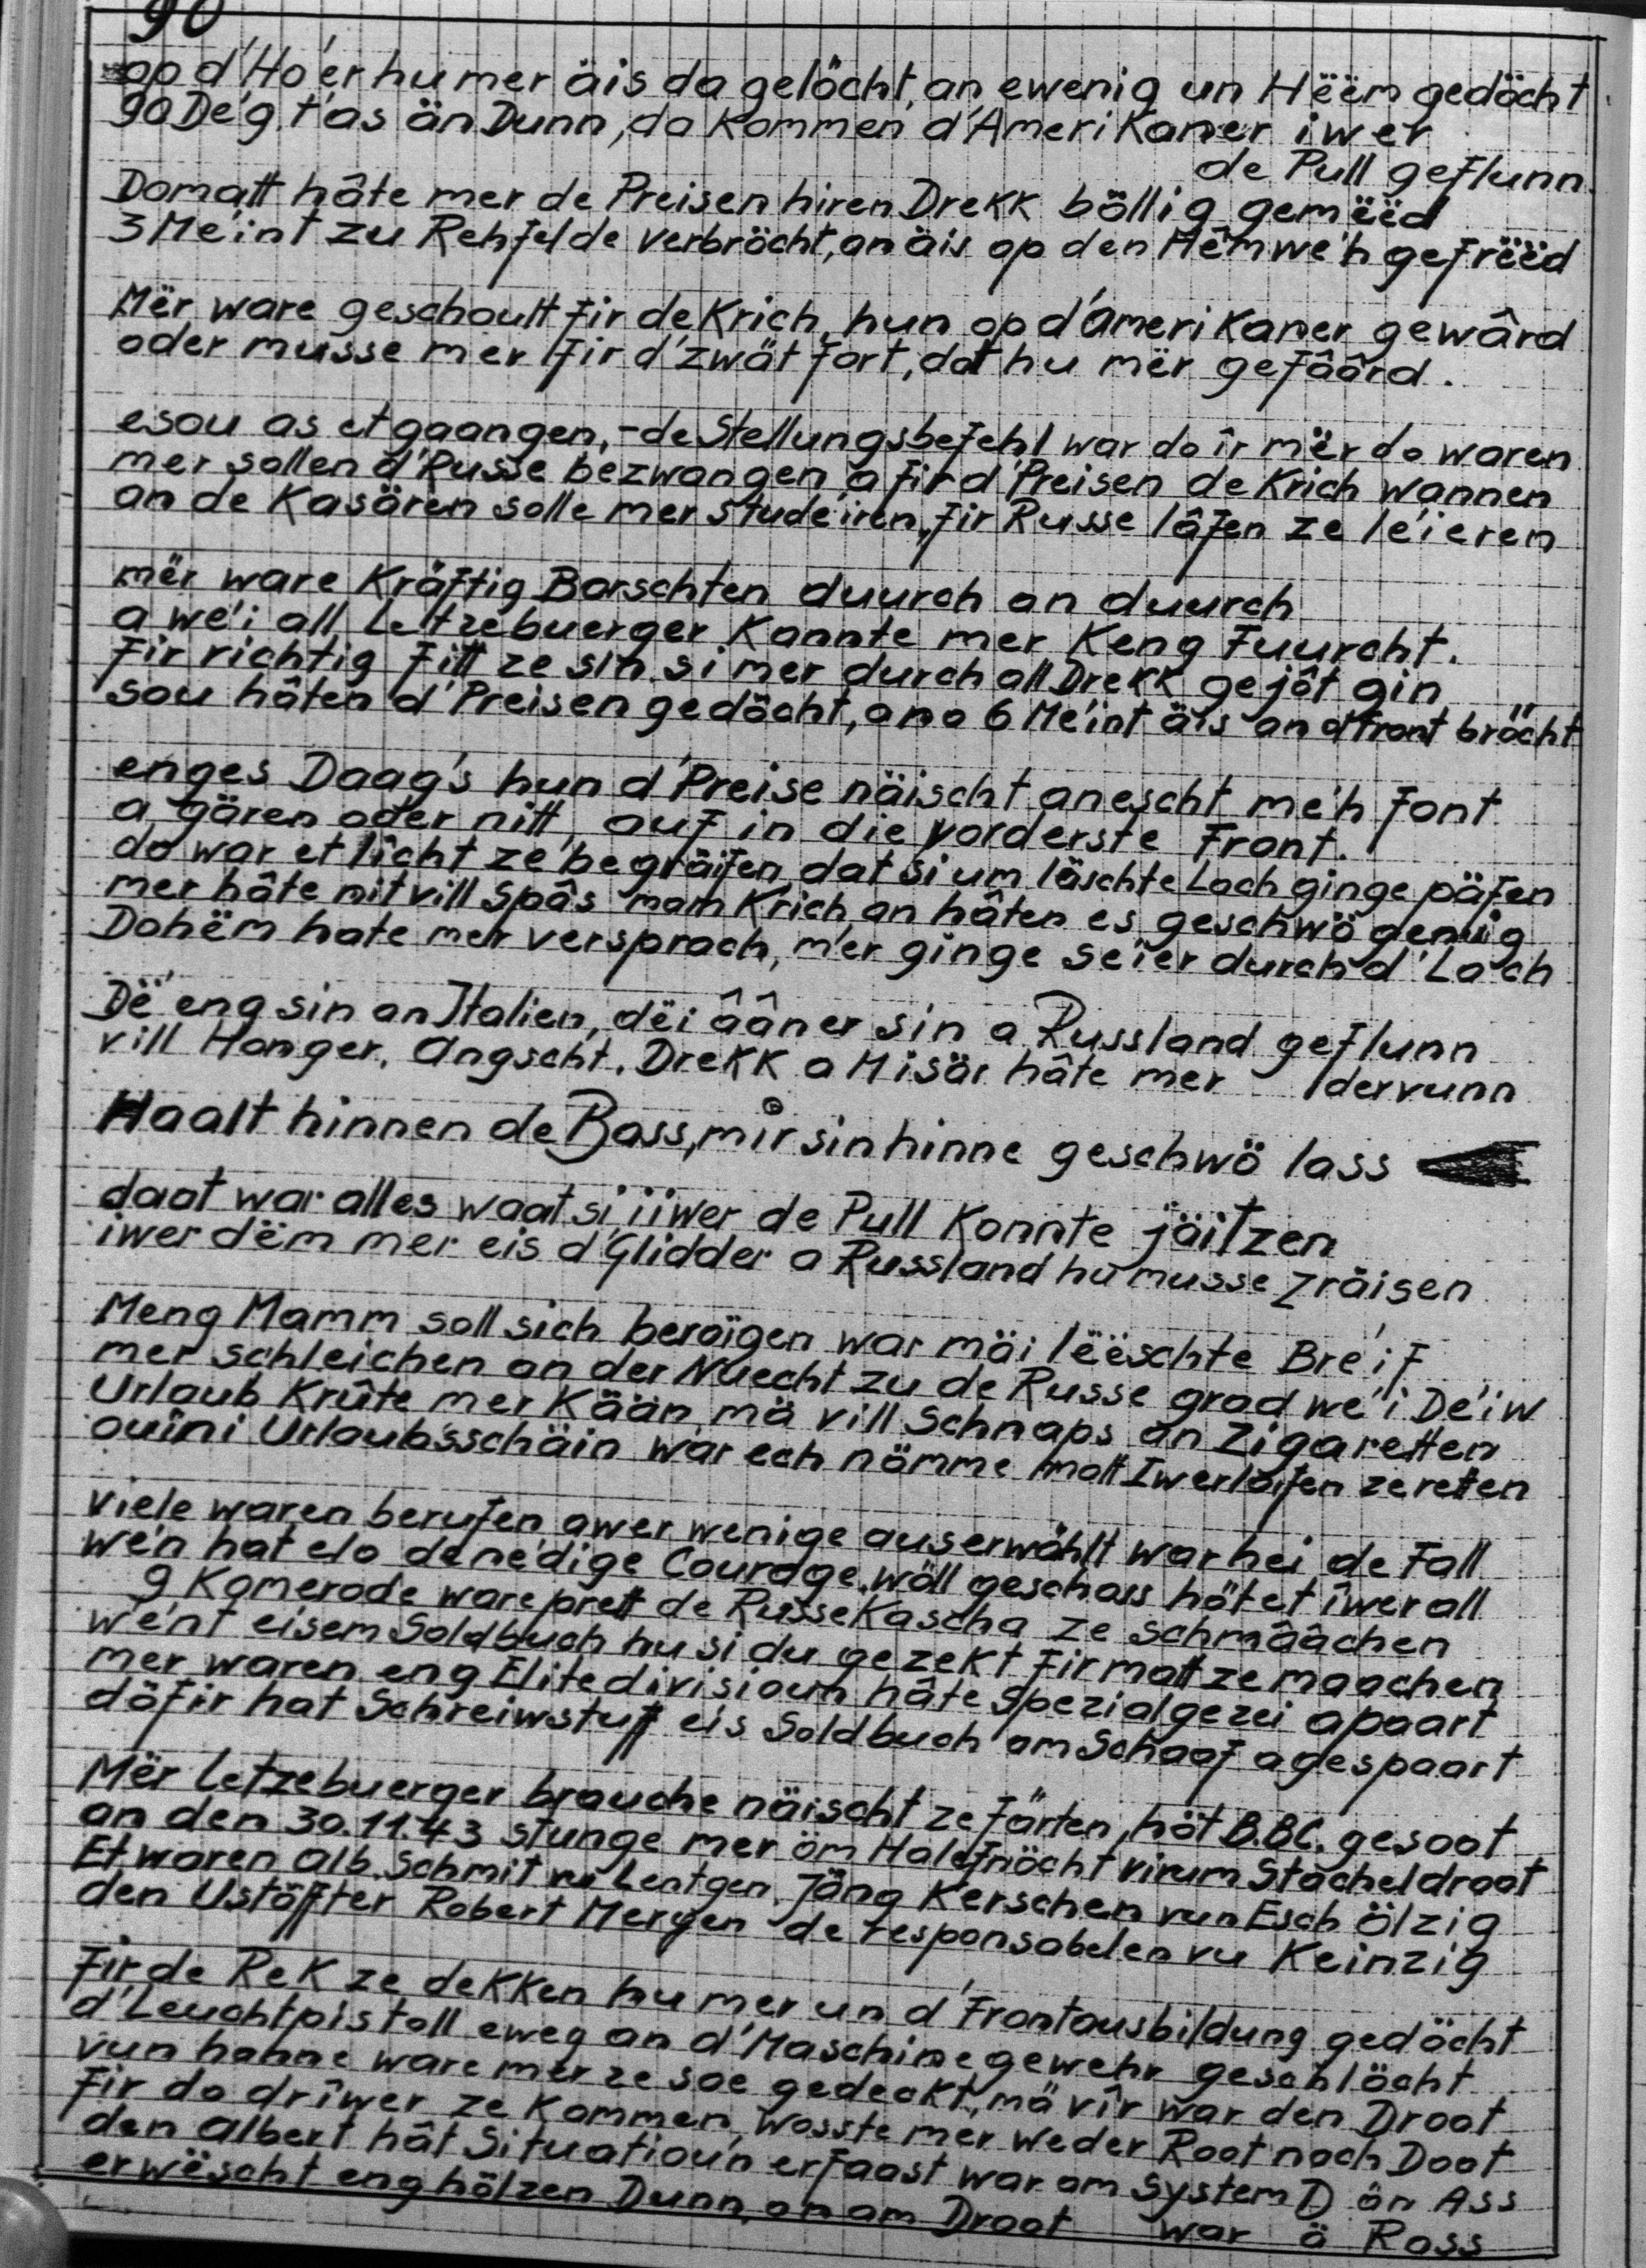 90
op d'Ho'er hu mer äis da gelöcht, an ewenig un Hëëm gedöcht
90 De'g t'as än Dunn, do kommen d'Amerikaner iwer
de Pull geflunn.
Domatt hâte mer de Preisen hiren Drekk böllig gemëëd
3 Me'int zu Rehfelde verbröcht, an äis op den Hêmwe'h gefrëëd
Mër ware geschoult fir de Krich, hun op d'Amerikaner gewârd
oder musse mer fir d'zwät fort, dat hu mër gefâârd.
esou as et gaangen, - de Stellungsbefehl war do îr mër do waren
mer sollen d'Russe bezwangen a fir d'Preisen de Krich wannen
an de Kasären solle mer stude'iren, fir Russe lâfen ze le'ieren
mër ware kräftig Borschten duurch an duurch
a we'i all Letzebuerger konnte mer keng Fuurcht.
Fir richtig fitt ze sin si mer durch all Drekk gejôt gin
sou hâten d'Preisen gedöcht, an a 6 Me'int äis an d'Front bröcht
enges Daag's hun d'Preise näischt anescht me'h font
a gären oder nitt, auf in die vorderste Front.
do war et licht ze begräifen dat si um läschte Lach ginge päfen
mer hâte nit vill Spâs mam Krich an hâten es geschwö genuig
Dohëm hate mer versprach, mer ginge se'ier durch d'Lach
Dë'eng sin an Italien, dëi âåner sin a Russland geflunn
vill Honger, Angscht, Drekk a Misär hâte mer dervunn
Haalt hinnen de Bass, mir sin hinne geschwö lass
daat war alles waat si iiwer de Pull konnte jäitzen
iwer dëm mer eis d'Glidder a Russland hu musse zräisen
Meng Mamm soll sich beroïgen war mäi lëëschte Bre'if
mer schleichen an der Nuecht zu de Russe grad we'i De'iw
Urlaub krûte mer kään, mä vill Schnaps an Zigaretten
ouîni Urlaubsschäin war ech nömme matt Iwerlaifen ze retten
viele waren berufen awer wenige auserwählt war hei de Fall
we'n hat elo de ne'dige Courage, wöll geschass hötet îwerall
9 Komerode ware prett de Russe Kascha ze schmââchen
we'nt eisem Soldbuch hu si du gezekt fir matt ze maachen
mer waren eng Elitedivisioun hâte Spezialgezei apaart
döfir hat Schreiwstuff eis Soldbuch am Schaaf agespaart
Mër Letzebuerger brauche näischt ze färten, höt B.B.C. gesoot
an den 30.11.43 stunge mer öm Halefnöcht virum Stacheldroot
Et waren Alb. Schmit vu Lentgen, Jäng Kerschen vun Esch ölzig
den Ustöffter Robert Mergen de responsabelen vu Keinzig
Fir de Rek ze dekken hu mer un d'Frontausbildung gedöcht
d'Leuchtpistoll eweg an d'Maschinegewehr geschlöcht
vun hanne ware mer ze soe gedeckt, mä vîr war den Droot
Fir do drîwer ze kommen, wosste mer weder Root noch Doot
den Albert hât Situatioun erfaast war am System D än Ass
erwëscht eng hölzen Dunn, an am Droot war ä Rass